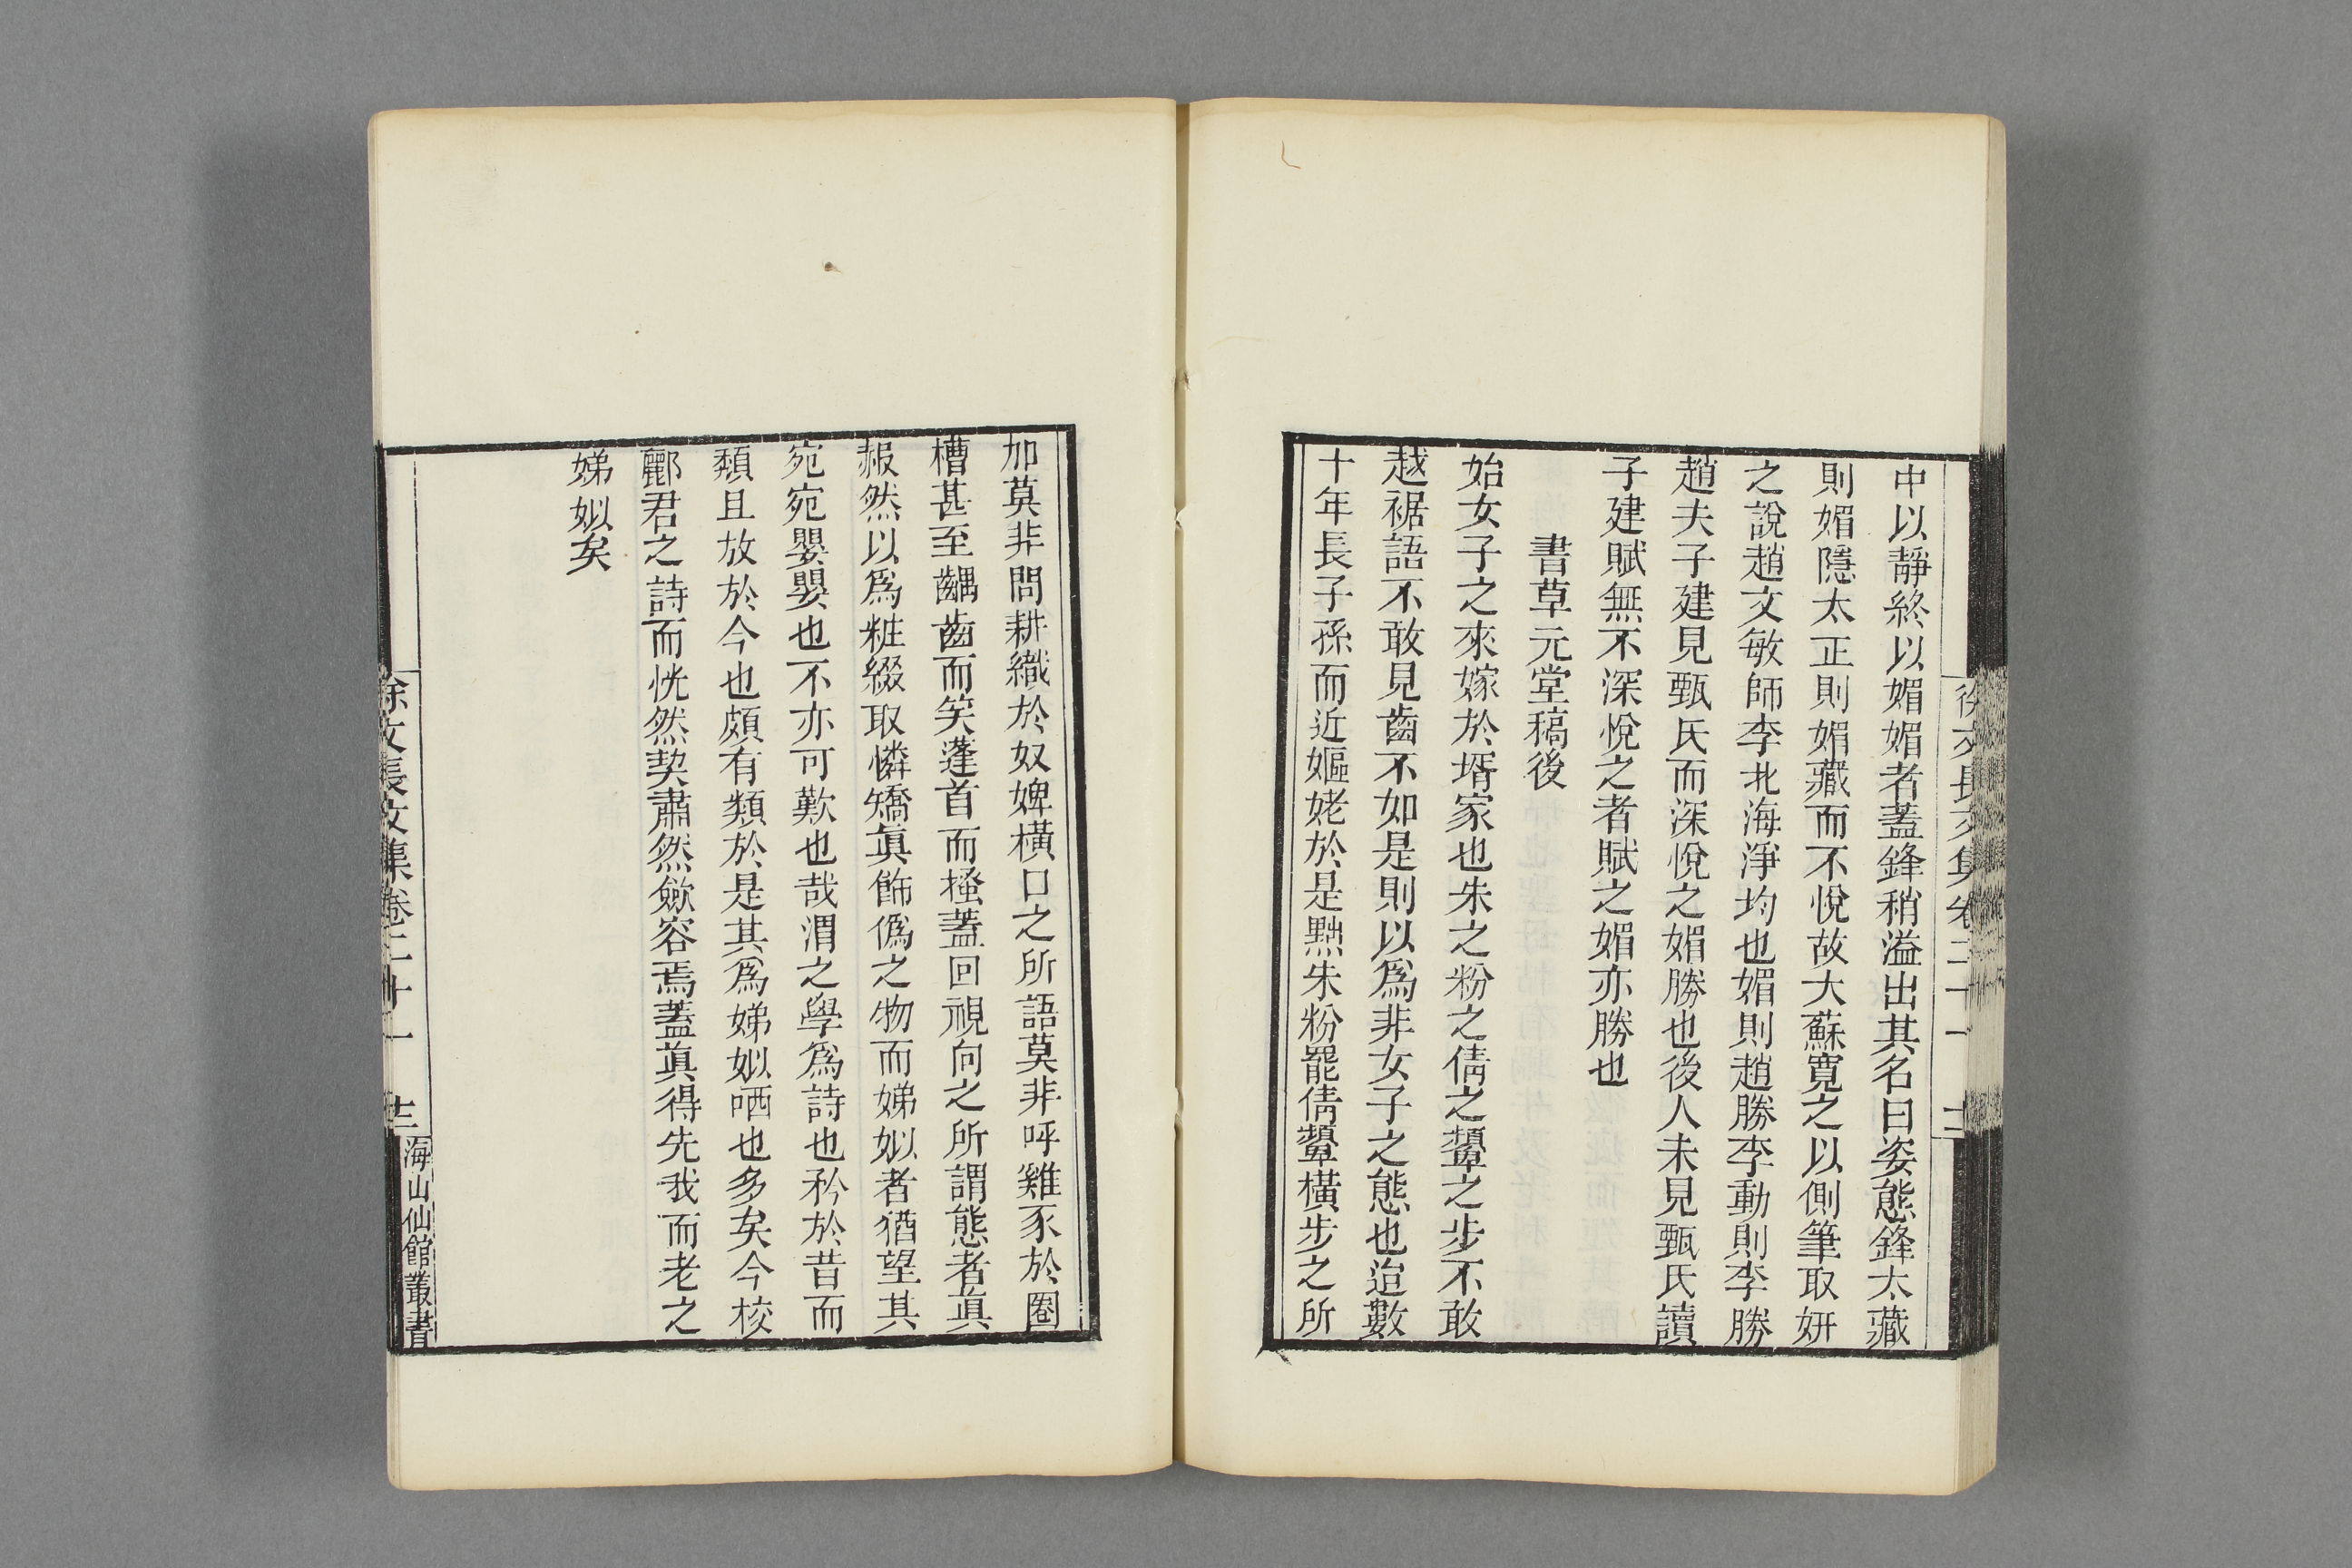 徐文長文集卷二十一 十二
中以靜終以媚媚者蓋鋒稍溢出其名曰姿態鋒太藏
則媚隱太正則媚藏而不悅故大蘇寬之以側筆取妍
之說趙文敏師李北海淨均也媚則趙勝李動則李勝
趙夫子建見甄氏而深悅之媚勝也後人未見甄氏讀
子建賦無不深悅之者賦之媚亦勝也
書草元堂稿後
始女子之來嫁於壻家也朱之粉之倩之顰之步不敢
越裾語不敢見齒不如是則以爲非女子之態也迨數
十年長子孫而近嫗姥於是黜朱粉罷倩顰橫步之所
加莫非問耕織於奴婢橫口之所語莫非呼雞豕於圈
槽甚至齵齒而笑蓬首而搔蓋回視向之所謂態者眞
赧然以爲粧綴取憐矯眞飾僞之物而娣姒者猶望其
宛宛嬰嬰也不亦可歎也哉渭之學爲詩也矜於昔而
頹且放於今也頗有類於是其爲娣姒哂也多矣今校
酈君之詩而恍然契肅然斂容焉蓋眞得先我而老之
娣姒矣
徐文長文集卷二十一 十二 海山仙館叢書